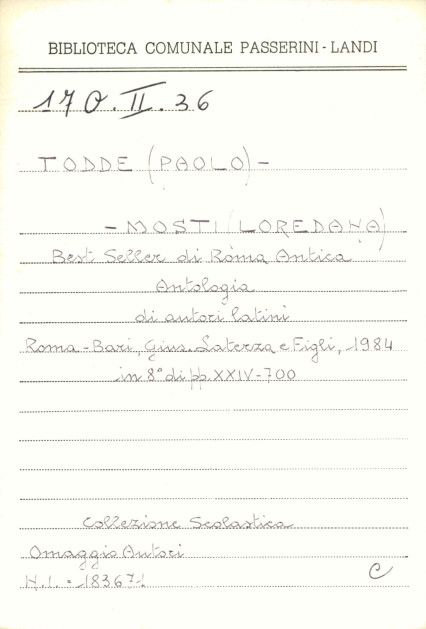 BIBLIOTECA COMUNALE PASSERINI-LANDI
170.II.36
TODDE (PAOLO) -
- MOSTI (LOREDANA)
Best Seller di Roma Antica
Antologia
di autori latini
Roma-Bari, Gius. Laterza e Figli, 1984
in 8° di pp. XXIV-700
Collezione Scolastica
Omaggio Autori
N.I. = 183671
C